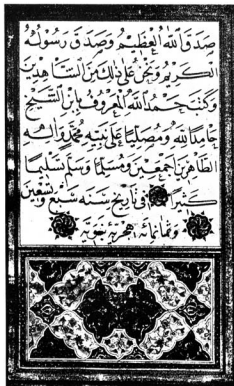 صَدَقَ اللهُ العَظِيمُ وَصَدَقَ رَسُولُهُ
الكَرِيمُ وَنَحْنُ عَلَى ذَلِكَ مِنَ الشَّاهِدِينَ
وَكَتَبَ حَمْدُ اللهِ المَعْرُوفُ بِابْنِ الشَّيْخِ
حَامِدًا لِلهِ وَمُصَلِّيًا عَلَى نَبِيِّهِ مُحَمَّدٍ وَآلِهِ
الطَّاهِرِينَ أَجْمَعِينَ وَمُسَلِّمًا وَسَلَّمَ تَسْلِيمًا
كَثِيرًا فِي تَارِيخِ سَنَةِ سَبْعٍ وَتِسْعِينَ
وَثَمَانِمِائَةٍ هِجْرِيَّةٍ نَبَوِيَّةٍ